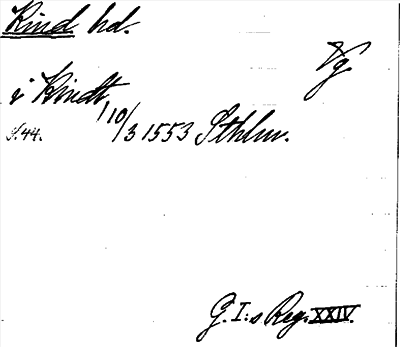 Kind hd.
Vg
i Kindt
S. 44. 10/3 1553 Sthlm.
G. I:s Reg. XXIV.